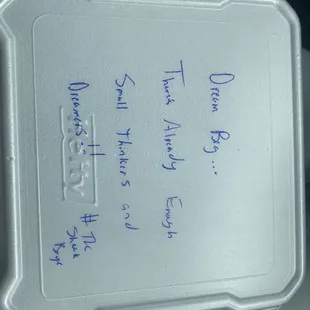 Dream Big...
There Already Enough
Small Thinkers and
Dreamers!!
# The
Shack
Boyz